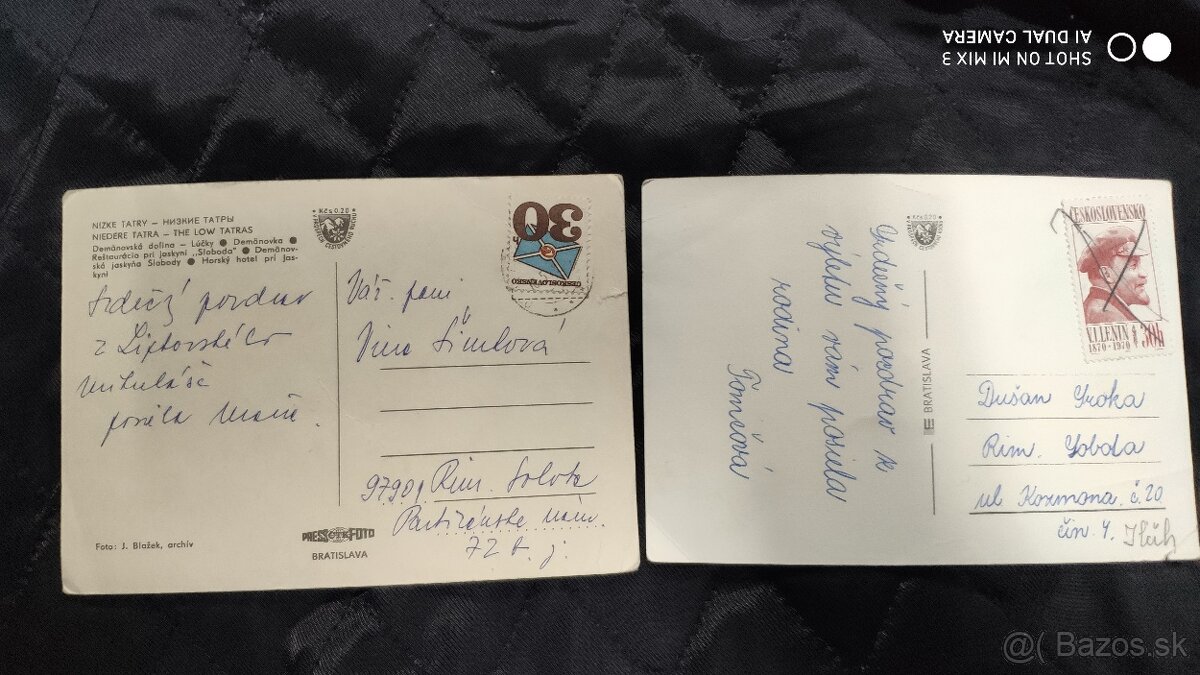 SHOT ON MI MIX 3
AI DUAL CAMERA
NIZKE TATRY – НИЗКИЕ ТАТРЫ
NIEDERE TATRA – THE LOW TATRAS
Demänovská dolina – Lúčky ● Demänovka ●
Reštaurácia pri jaskyni „Sloboda" ● Demänov-
ská jaskyňa Slobody ● Horský hotel pri jas-
kyni
Kčs 0.20
30
ČESKOSLOVENSKO
Srdečný pozdrav
z Liptovského
Mikuláša
posiela
Váž. pani
Vina Šimková
97901 Rim. Sobota
Partizánske nám.
72
Foto: J. Blažek, archív
PRESSFOTO
BRATISLAVA
Kčs 0.20
ČESKOSLOVENSKO
V.I. LENIN
1870 · 1970
30h
Srdečný pozdrav z
výletu vám posiela
rodina
Tomičová
BRATISLAVA
Dušan Sroka
Rim. Sobota
ul Kozmona č. 20
čín 4.
@( Bazos.sk